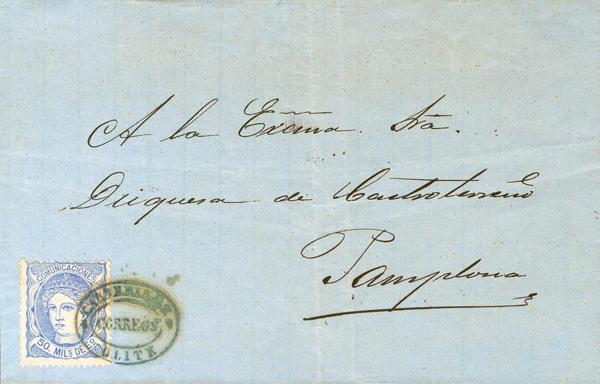 A la Exc̃ma. Sra.
Duquesa de Castroterreño
Pamplona
COMUNICACIONES
50 MILS DE Eo
CORREOS
OLITE